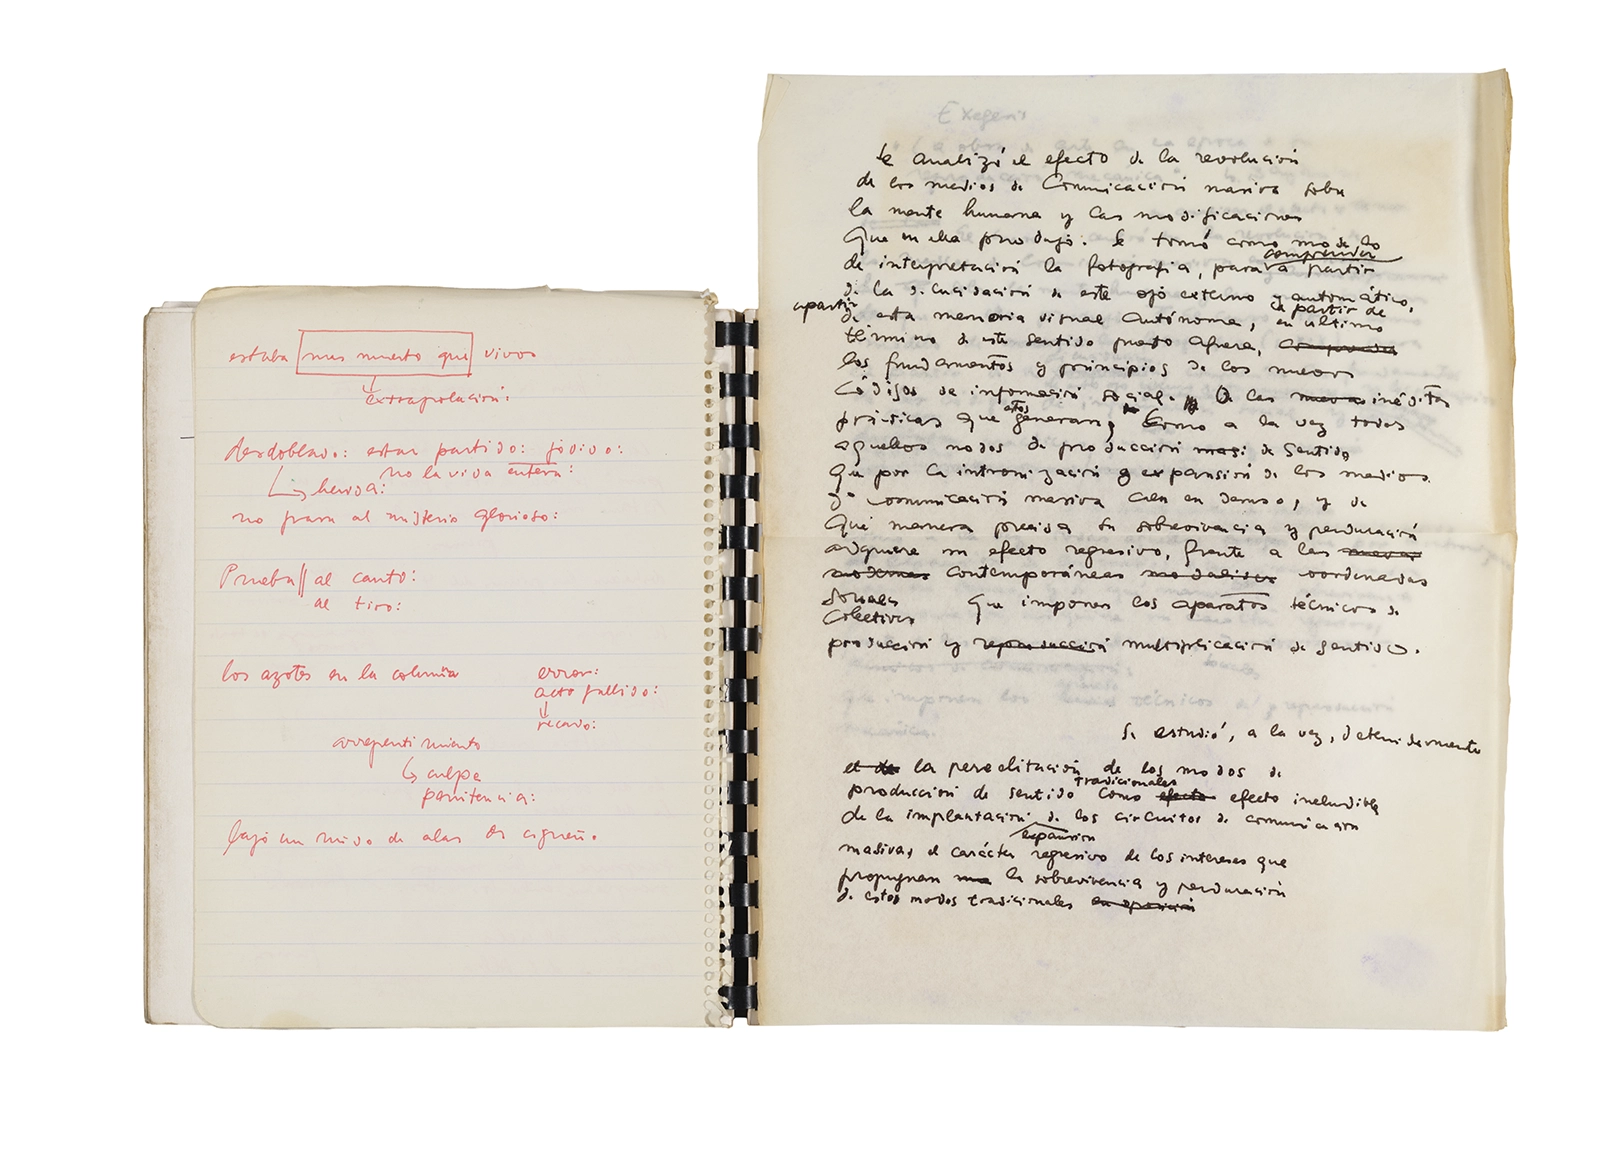 estaba mas muerto que vivo
extrapolación:
desdoblado: estar partido: jodido:
no la vida entera:
herida:
no para al misterio glorioso:
Prueba || al canto:
al tiro:
los azotes en la columna
error:
acto fallido:
recado:
arrepentimiento
culpa
penitencia:
bajo un nido de alas de cigueña
Exegesis
Se analizó el efecto de la revolución
de los medios de Comunicación masiva sobre
la mente humana y las modificaciones
que en ella produjo. Se tomó como modelo
comprender
de interpretación la fotografía, para a partir
de la dilucidación de este ojo externo y automático,
apartir
a partir de
de esta memoria visual Autónoma, en último
término de este sentido puesto afuera, comprender
los fundamentos y principios de los nuevos
Códigos de información social. De las nuevas inéditas
prácticas que estos generan, como a la vez todos
aquellos modos de producción de Sentido
que por la intronización y expansión de los medios
de comunicación masiva caen en desuso, y de
Qué manera precisa su sobrevivencia y perduración
adquiere un efecto regresivo, frente a las nuevas
modernas contemporáneas modalidades coordenadas
Colectivas
que imponen los aparatos técnicos de
producción y reproducción multiplicación de sentido.
que imponen los técnicos de reproducción
Se estudió, a la vez, detenidamente
el de la periclitación de los modos de
tradicionales
producción de sentido como efecto efecto ineludible
de la implantación de los circuitos de comunicación
expansión
masiva, el carácter regresivo de los intereses que
propugnan la sobrevivencia y perduración
de estos modos tradicionales en oposición